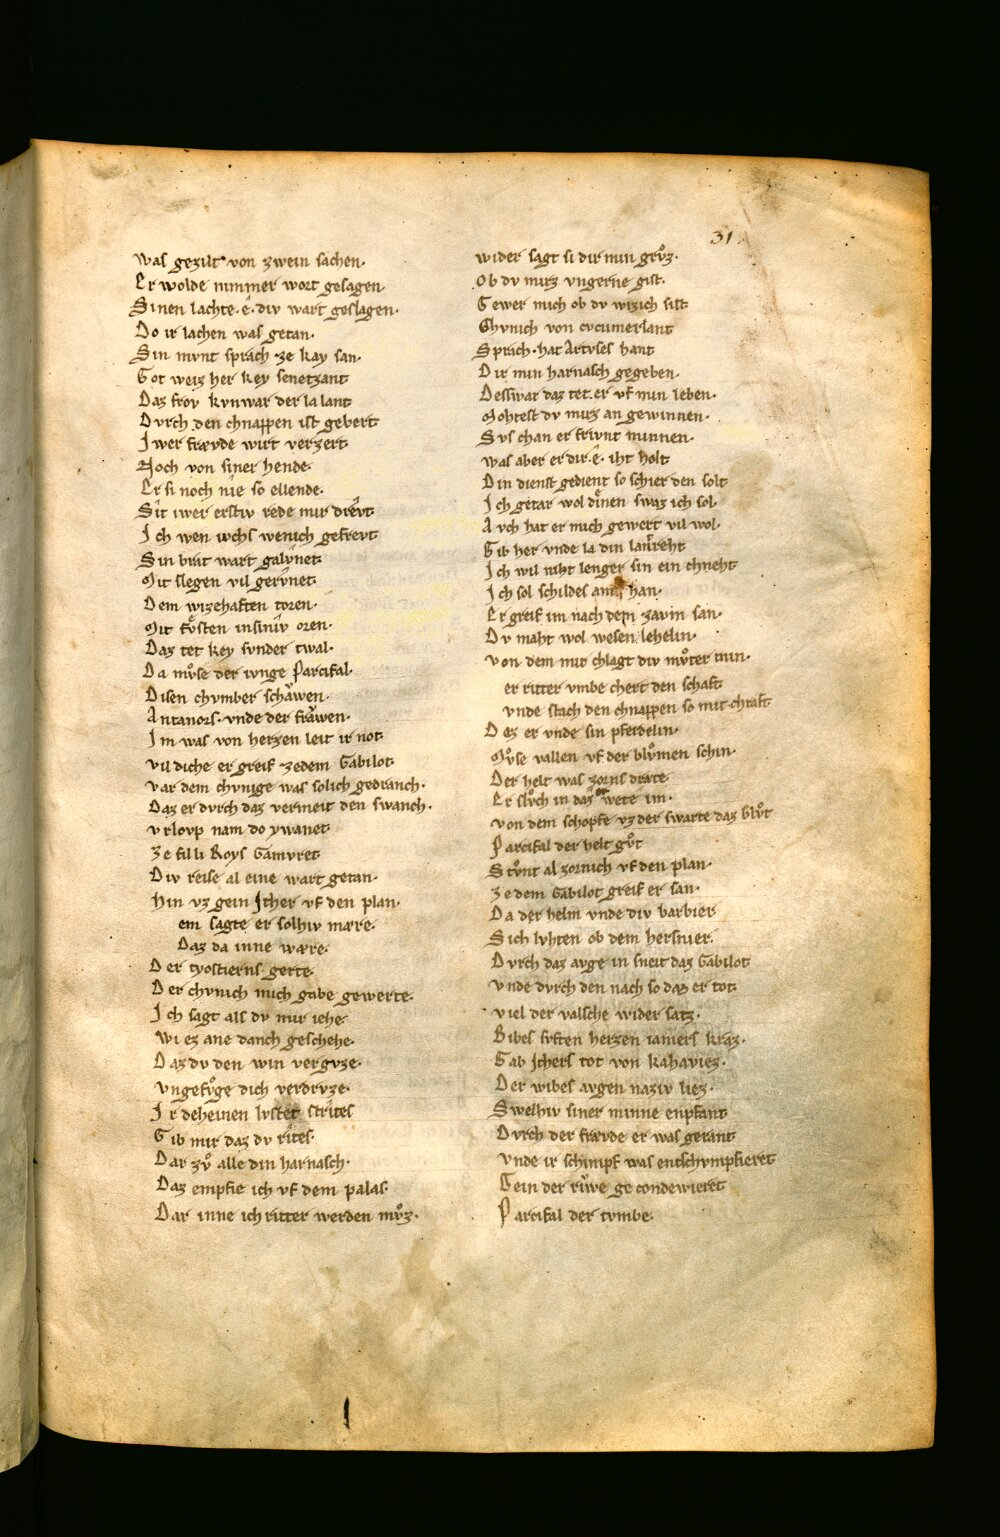 31.
Was gezilt von zwein sachen.
Er wolde nimmer wort gesagen
Sinen lachte. e. div wart geslagen.
Do ir lachen was getan.
Sin mvnt sprach. ze kay san.
Got weiz her key senetzant
Daz froy kvnwar der la lant
Dvrch den chnappen ist gebert
Jwer frævde wirt verzert
Noch von siner hende.
Er si noch nie so ellende.
Sit iwer erstiv rede mir drevt
Jch wen iwchs wenich gefrevt
Sin brat wart galvnet
Mit slegen vil gervnet
Dem wizehaften toren.
Mit fvsten in siniv oren.
Daz tet key svnder twal.
Da mvͦse der ivnge Parcifal.
Disen chvmber schawen.
Antanors. vnde der frawen.
Jm was von herzen leit ir not
vil diche er greif. zedem Gabilot
var dem chvnige was solich gedranch.
Daz er dvrch daz vermeit den swanch.
vrlovp nam do ywanet
Ze fil li Roys Gamvret
Div reise al eine wart getan.
Hin vz gein Jther vf den plan.
em sagte er solhiv mære.
Daz da inne wære.
Der tyostierns gerte.
Der chvnich mich gabe gewerte.
Jch sagt als dv mir iehe.
Wi ez ane danch geschehe.
Daz dv den win vergvze.
Vngefvͦge dich verdrvze.
Jr deheinen lvstet strites
Gib mir daz dv rites.
Dar zvͦ alle din harnasch.
Daz empfie ich vf dem palas.
Dar inne ich ritter werden mvͦz.
wider sagt si dir min grvͦz.
Ob dv mirz vngerne gist.
Gewer mich ob dv wizich sist
Chvnich von cvcumerlant
Sprach. hat Artvses hant
Dir min harnasch gegeben.
Desswar daz tet er vf min leben.
Mohtest dv mirz an gewinnen.
Svs chan er frivnt minnen.
was aber er dir. e. iht holt
Din dienst gedient so schier den solt
Jch getar wol dinen swaz ich sol
Avch hat er mich gewert vil wol.
Gib her vnde la din lantreht
Jch wil niht lenger sin ein chneht
Jch sol schildes han.
Er greif im nach dem zavm san.
Dv maht wol wesen lehelin.
von dem mir chlagt div mvͦter min.
er ritter vmbe chert den schaft
vnde stach den chnappen so mit chraft
Dez er vnde sin pferdelin.
Mvͦse vallen vf der blvͦmen schin.
Der helt was zorns dræte
Er slvͦch in daz wete im.
von dem schopfe vz der swarte daz blvͦt
Parcifal der helt gvͦt
Stvͦnt al zornich vf den plan.
zedem Gabilot greif er san.
Da der helm vnde div barbier
Sich lvhten ob dem hersnier.
Dvrch daz avge in sneit daz Gabilot
vnde dvrch den nach so daz er tot
viel der valsche wider satz.
Bibes svften herzen iamers kraz.
Gab Jthers tot von kahaviez.
Der wibes avgen naziv liez.
Swelhiv siner minne enpfant
Dvrch der frævde er was gerant
Vnde ir schimpf was entschvmpfieret
Gein der rivwe ge condewieret
Parcifal der tvmbe.